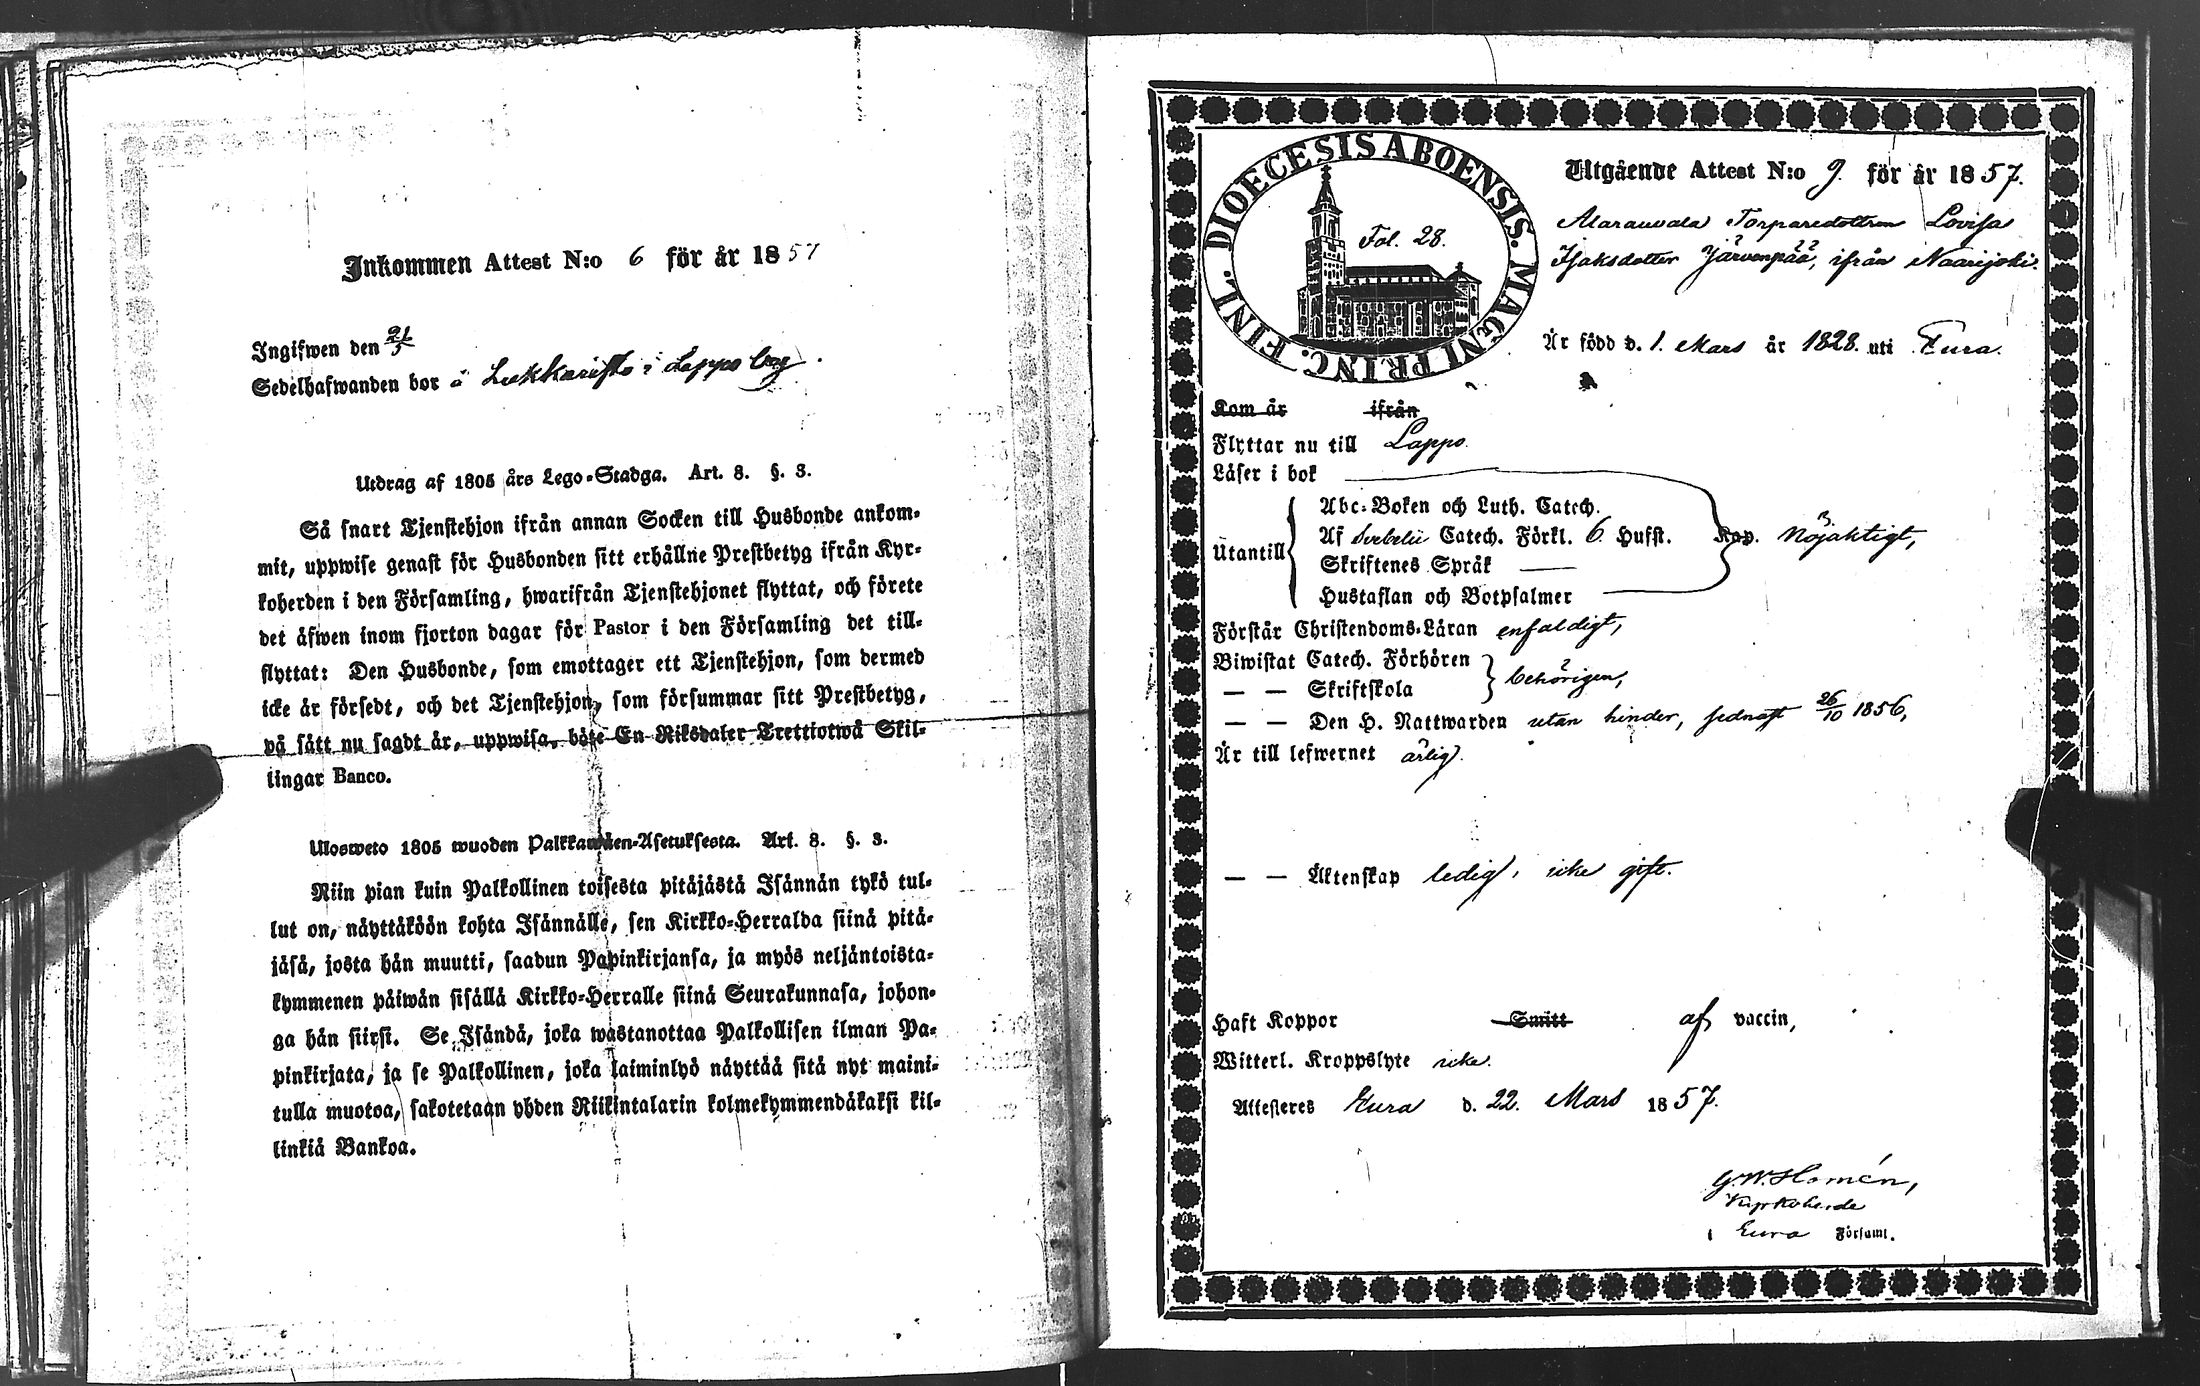 Inkommen Attest N:o 6 för år 1857
Ingifwen den 21/5
Sedelhafwanden bor å Lukkaristo i Lappo by.
Utdrag af 1805 års Lego-Stadga. Art. 8. §. 3.
Så snart Tjenstehjon ifrån annan Socken till Husbonde ankom-
mit, uppwise genast för Husbonden sitt erhållne Prestbetyg ifrån Kyr-
koherden i den Församling, hwarifrån Tjenstehjonet flyttat, och förete
det äfwen inom fjorton dagar för Pastor i den Församling det till-
flyttat: Den Husbonde, som emottager ett Tjenstehjon, som dermed
icke är försedt, och det Tjenstehjon, som försummar sitt Prestbetyg,
på sätt nu sagdt är, uppwisa, böte En Riksdaler Trettiotwå Skil-
lingar Banco.
Ulosweto 1805 wuoden Palkkawäen-Asetuksesta. Art. 8. §. 3.
Niin pian kuin Palkollinen toisesta pitäjästä Isännän tykö tul-
lut on, näyttäköön kohta Isännälle, sen Kirkko-Herralda siinä pitä-
jäsä, josta hän muutti, saadun Papinkirjansa, ja myös neljäntoista-
kymmenen päiwän sisällä Kirkko-Herralle siinä Seurakunnasa, johon-
ga hän siirsi. Se Isändä, joka wastanottaa Palkollisen ilman Pa-
pinkirjata, ja se Palkollinen, joka laiminlyö näyttää sitä nyt maini-
tulla muotoa, sakotetaan yhden Riikintalarin kolmekymmendäkaksi kil-
linkiä Bankoa.
DIOECESIS ABOENSIS. MAGNI PRINC. FINL.
Fol. 28.
Utgående Attest N:o 9. för år 1857.
Torparedottren Lovisa
Isaksdotter Järvenpää, ifrån Naarijoki.
Är född d. 1. Mars år 1828. uti Eura.
Kom år ifrån
Flyttar nu till Lappo.
Läser i bok
Utantill
Abc-Boken och Luth. Catech.
Af Svebelii Catech. Förkl. 6 Hufst. Kap. Nöjaktigt,
Skriftenes Språk
Hustaflan och Botpsalmer
Förstår Christendoms-Läran enfaldigt,
Biwistat Catech. Förhören
— — Skriftskola behörigen,
— — Den H. Nattwarden utan hinder, sednast 26/10 1856,
Är till lefwernet ärlig.
— — Äktenskap ledig, icke gift.
Haft Koppor Smitt af vaccin,
Witterl. Kroppslyte icke.
Attesteres Eura d. 22. Mars 1857.
G.W. Homén,
Kyrkoherde
i Eura Församl.